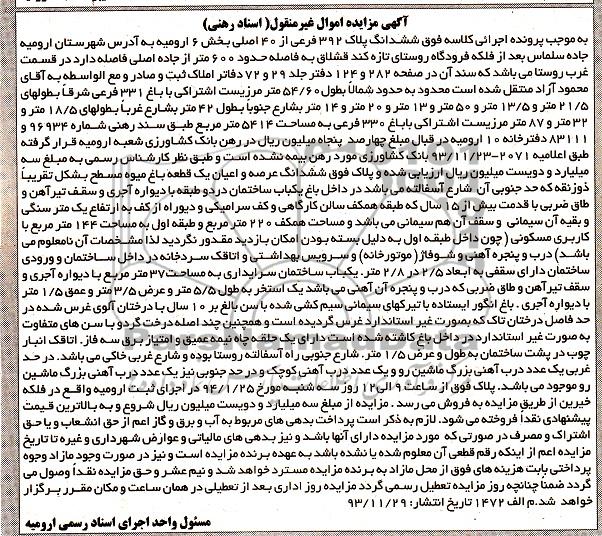 آگهی مزایده اموال غیرمنقول( اسناد رهنی)
به موجب پرونده اجرائی کلاسه فوق ششدانگ پلاک ۳۹۲ فرعی از ۴۰ اصلی بخش ۶ ارومیه به آدرس شهرستان ارومیه
جاده سلماس بعد از فلکه فرودگاه روستای تازه کند قشلاق به فاصله حدود ۶۰۰ متر از جاده اصلی فاصله دارد در قسمت
غرب روستا می باشد که سند آن در صفحه ۲۸۲ و ۱۲۴ دفتر جلد ۲۹ و ۷۲ دفاتر املاک ثبت و صادر و مع الواسطه به آقای
محمود آزاد منتقل شده است محدود به حدود شمالاً بطول ۵۴/۶۰ متر مرزیست اشتراکی با باغ ۳۳۱ فرعی شرقاً بطولهای
۲۱/۵ متر و ۱۳/۵ متر و ۵۰ متر و ۱۳ متر و ۲۰ متر و ۱۴ متر بشارع جنوباً بطول ۴۲ متر بشارع غرباً بطولهای ۱۸/۵ متر و
۳۲ متر و ۸۷ متر مرزیست اشتراکی با باغ ۳۳۰ فرعی به مساحت ۵۴۱۴ متر مربع طبق سند رهنی شماره ۹۶۹۳۴ و
۸۳۱۱۱ دفترخانه ۱۰ ارومیه در قبال مبلغ دویست و پنجاه میلیون ریال در رهن بانک کشاورزی شعبه ارومیه قرار گرفته
طبق اعلامیه ۲۰۷۱-۹۳/۱۱/۲۳ بانک کشاورزی مورد رهن بیمه نشده است و طبق نظر کارشناس رسمی به مبلغ سه
میلیارد و دویست میلیون ریال ارزیابی شده و پلاک فوق ششدانگ عرصه و اعیان یک قطعه باغ میوه مسطح بشکل تقریباً
ذوزنقه که حد جنوبی آن شارع آسفالته می باشد در داخل باغ یکباب ساختمان در دو طبقه با دیواره آجری و سقف تیرآهن و
طاق ضربی با قدمت بیش از ۱۵ سال که طبقه همکف سالن کارگاهی و کف سرامیکی و دیواره از کف به ارتفاع یک متر سنگی
و بقیه آن سیمانی و سقف آن هم سیمانی می باشد و مساحت همکف ۲۲۰ متر مربع و طبقه اول به مساحت ۱۴۴ متر مربع با
کاربری مسکونی ( چون داخل طبقه اول به دلیل بسته بودن امکان بازدید مقدور نگردید لذا مشخصات آن نامعلوم می
باشد) درب و پنجره آهنی و شوفاژ ( موتورخانه) و سرویس بهداشتی و اتاقک سردخانه در داخل ساختمان و ورودی
ساختمان دارای سقفی به ابعاد ۲/۵ در ۲/۸ متر. یکباب ساختمان سرایداری به مساحت ۳۷ متر مربع با دیواره آجری و
سقف تیرآهن و طاق ضربی که درب و پنجره آن آهنی می باشد یک استخر به طول ۵/۵ متر و عرض ۳/۵ متر و عمق ۱/۵ متر
با دیواره آجری . باغ انگور ایستاده با تیرکهای سیمانی سیم کشی شده با سن بالغ بر ۱۰ سال با درختان آلوی غرس شده در
حد فاصل درختان تاک که بصورت غیر استاندارد غرس گردیده است و همچنین چند اصله درخت گردو با سن های متفاوت
به صورت غیر استاندارد در داخل باغ کاشته شده است دارای یک حلقه چاه نیمه عمیق و امتیاز برق سه فاز. اتاقک انبار
چوب در پشت ساختمان به طول و عرض ۱/۵ متر. شارع جنوبی راه آسفالته روستا بوده و شارع غربی خاکی می باشد. در حد
غربی یک عدد درب آهنی بزرگ ماشین رو و یک عدد درب آهنی کوچک و در حد جنوبی نیز یک عدد درب آهنی بزرگ ماشین
رو موجود می باشد. پلاک فوق از ساعت ۹ الی ۱۲ روز سه شنبه مورخ ۹۴/۱/۲۵ در اجرای ثبت ارومیه واقع در فلکه
خیرین از طریق مزایده به فروش می رسد . مزایده از مبلغ سه میلیارد و دویست میلیون ریال شروع و به بالاترین قیمت
پیشنهادی نقداً فروخته می شود. لازم به ذکر است پرداخت بدهی های مربوط به آب و برق و گاز اعم از حق انشعاب و یا حق
اشتراک و مصرف در صورتی که مورد مزایده دارای آنها باشد و نیز بدهی های مالیاتی و عوارض شهرداری و غیره تا تاریخ
مزایده اعم از اینکه رقم قطعی آن معلوم شده یا نشده باشد به عهده برنده مزایده است و نیز در صورت وجود مازاد وجوه
پرداختی بابت هزینه های فوق از محل مازاد به برنده مزایده مسترد خواهد شد و نیم عشر و حق مزایده نقداً وصول می
گردد ضمناً چنانچه روز مزایده تعطیل رسمی گردد مزایده روز اداری بعد از تعطیلی در همان ساعت و مکان مقرر برگزار
خواهد شد.م الف ۱۴۷۲ تاریخ انتشار: ۹۳/۱۱/۲۹
مسئول واحد اجرای اسناد رسمی ارومیه